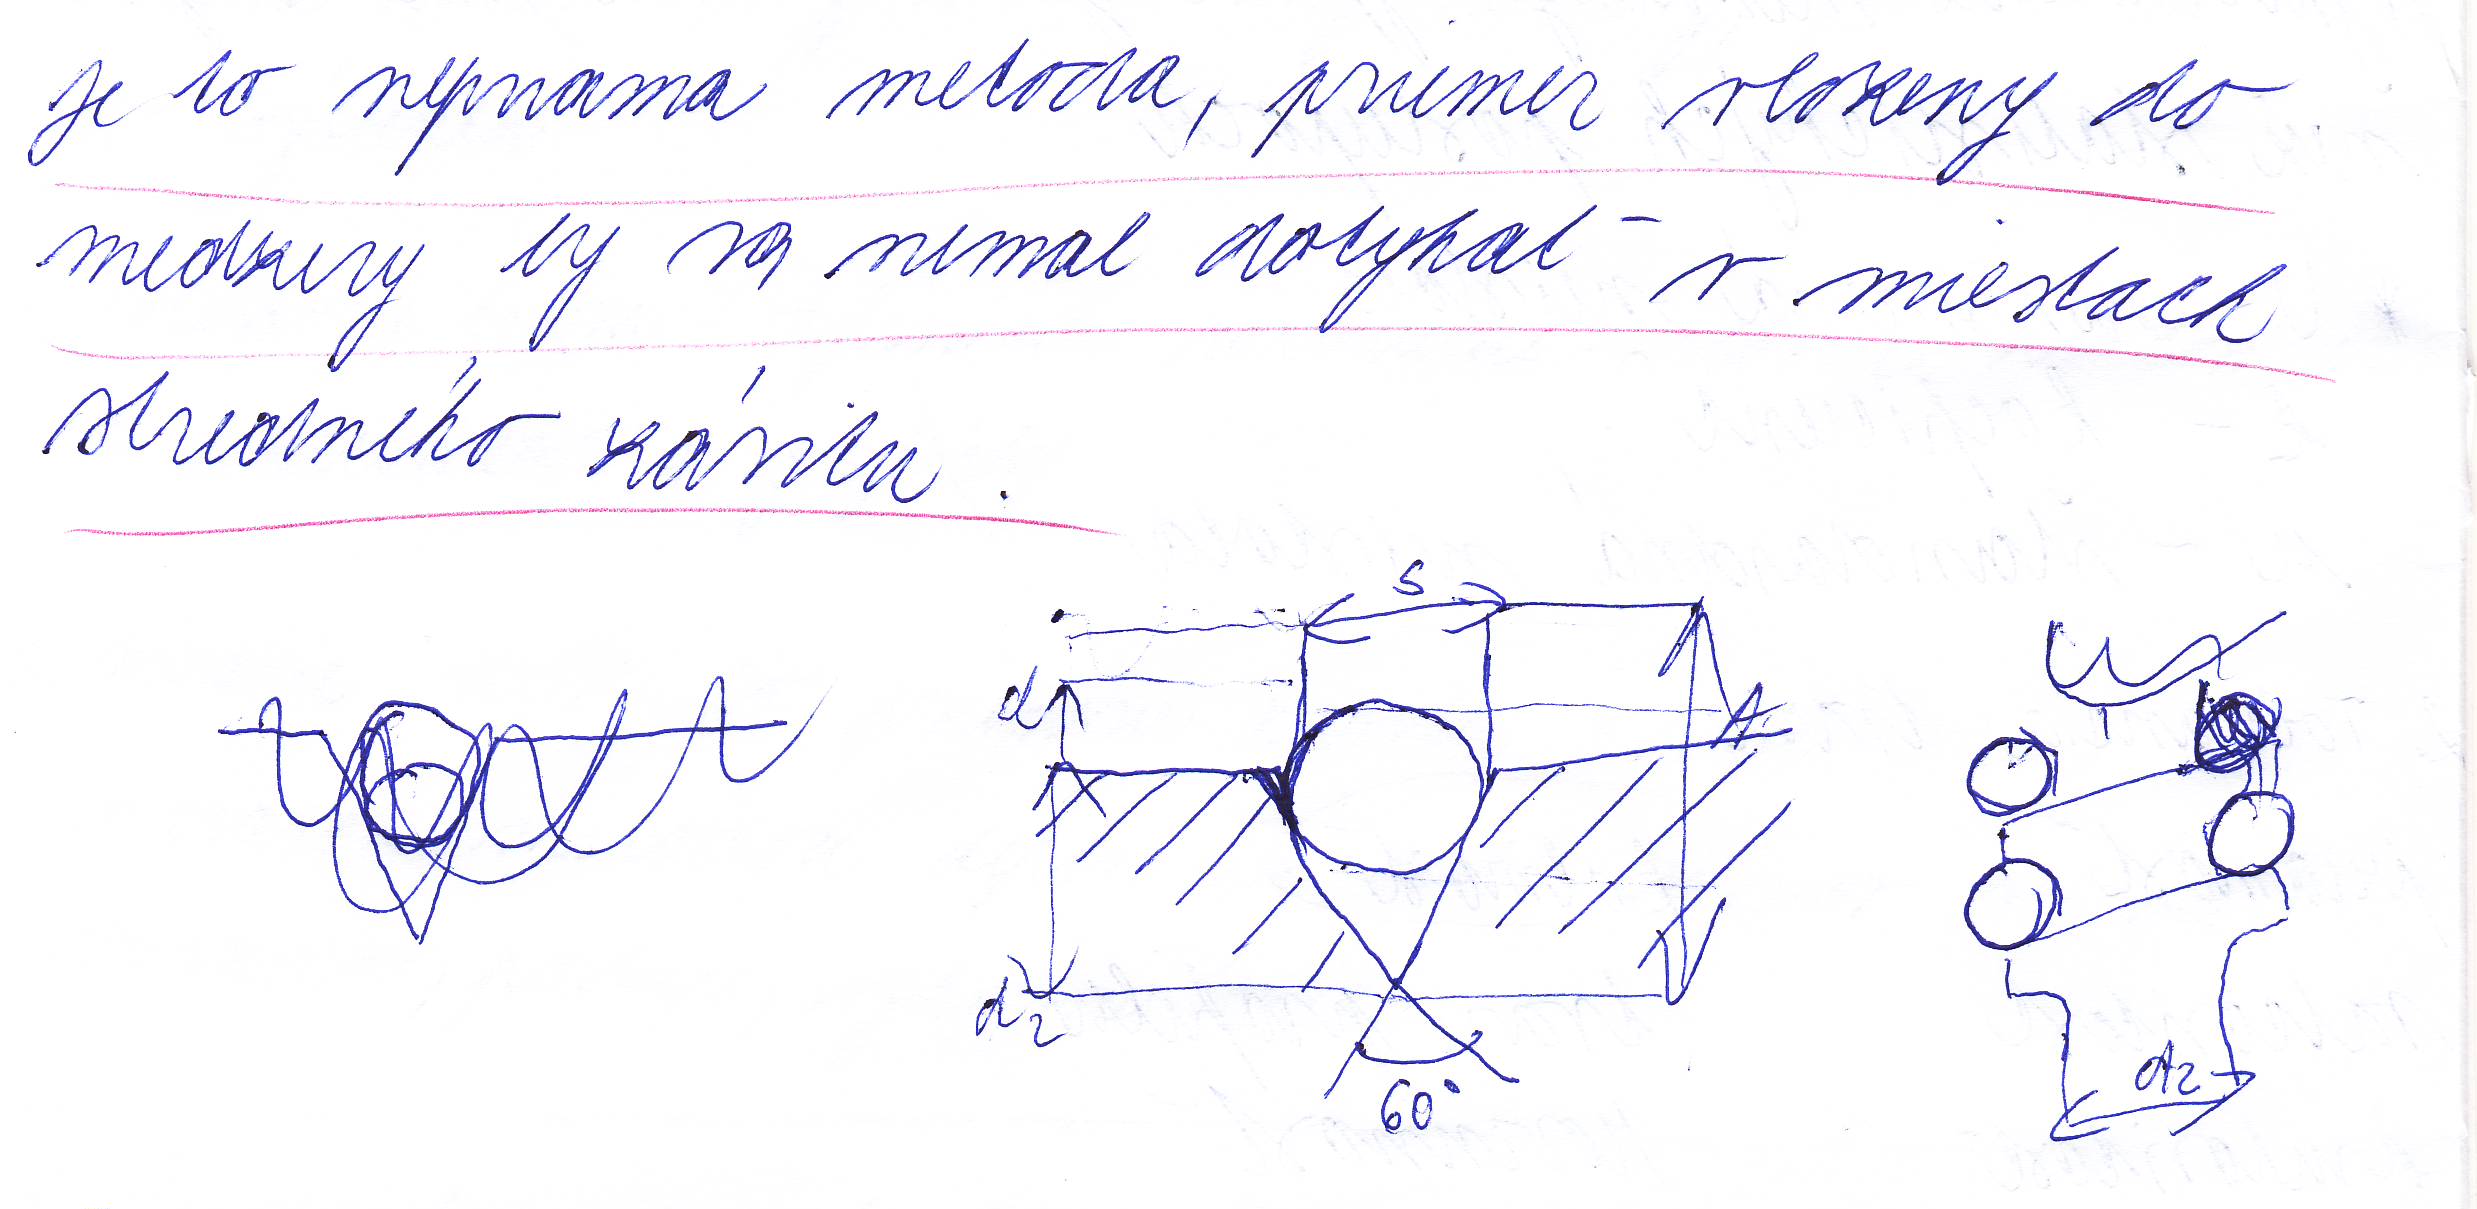 je to nepriama metoda, priemer vlozeny do
medzery by sa nemal dotykať v miestach
stredného závitu.
S
d
A
d2
60°
d2